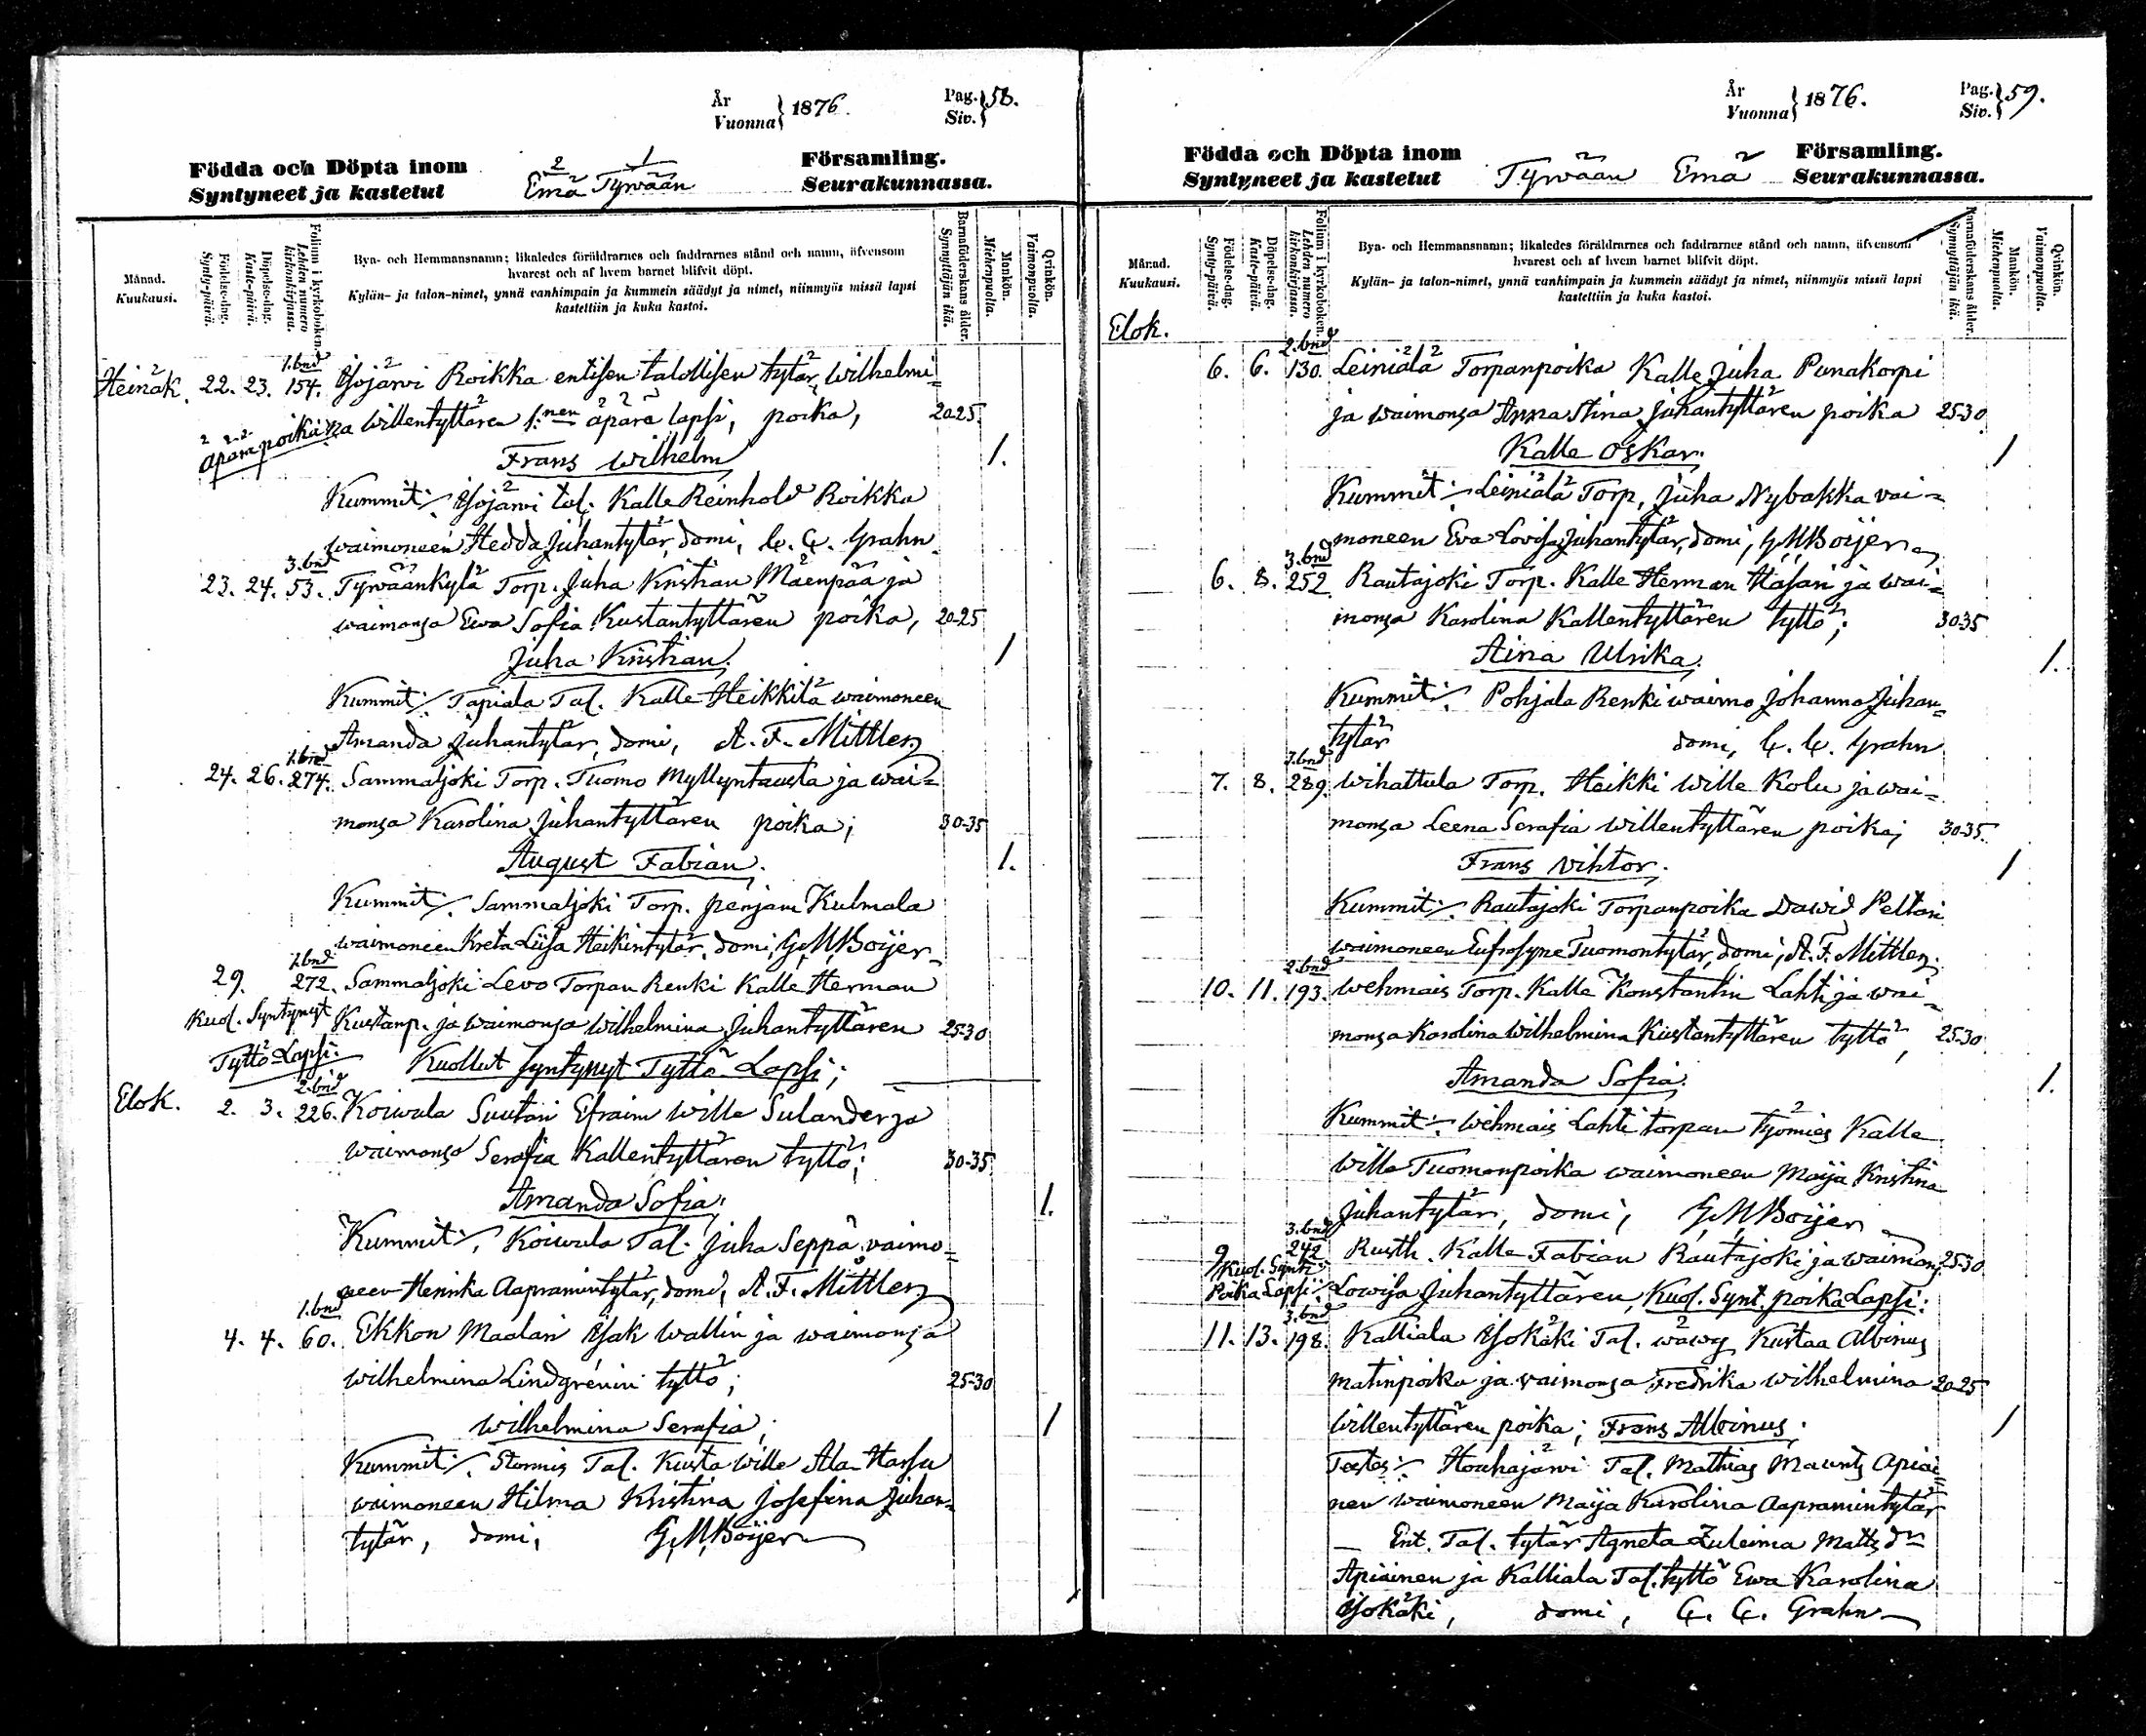 År
Vuonna } 1876.
Pag.
Siv. } 58.
Födda och Döpta inom
Syntyneet ja kastetut
Emä Tyrwään
Församling.
Seurakunnassa.
Månad.
Kuukausi.
Födelse-dag.
Synty-päivä.
Döpelse-dag.
Kaste-päivä.
Folium i kyrkoboken.
Lehden numero kirkonkirjassa.
Bya- och Hemmansnamn; likaledes föräldrarnes och faddrarnes stånd och namn, äfvensom
hvarest och af hvem barnet blifvit döpt.
Kylän- ja talon-nimet, ynnä vanhimpain ja kummein säädyt ja nimet, niinmyös missä lapsi
kastettiin ja kuka kastoi.
Barnaföderskans ålder.
Synnyttäjän ikä.
Mankön.
Miehenpuolta.
Qvinkön.
Vaimonpuolta.
1. bnd
Heinäk. 22. 23. 154. Isojärwi Roikka entisen talollisen tytär, Wilhelmi-
äpärä poika
na Willentyttären 1:nen äpärä lapsi, poika, 20-25
Frans Wilhelm 1.
Kummit:/. Isojärwi tal. Kalle Reinhold Roikka
waimoneen Hedda Juhantytär, domi, C. C. Grahn
3. bnd
23. 24. 53. Tyrwäänkylä Torp. Juha Kristian Mäenpää ja
waimonsa Ewa Sofia Kustantyttären poika, 20-25
Juha Kristian. 1
Kummit:/. Tapiala Tal. Kalle Heikkilä waimoneen
Amanda Juhantytär, domi, A. F. Mittler
1. bnd
24. 26. 274. Sammaljoki Torp. Tuomo Myllyntausta ja wai-
monsa Karolina Juhantyttären poika; 30-35
August Fabian. 1.
Kummit:/. Sammaljoki Torp. Penjam Kulmala
waimoneen Kreta Liisa Heikintytär, domi, G. M. Boijer
1. bnd
29. 272. Sammaljoki Levo Torpan Renki Kalle Herman
Kuol. Syntynyt
Kustanp. ja waimonsa Wilhelmina Juhantyttären 25-30
Tyttö Lapsi.
Kuollut syntynyt Tyttö Lapsi;
2. bnd
Elok. 2. 3. 226. Koiwula Suutari Efraim Wille Sulander ja
waimonsa Serafia Kallentyttären tyttö; 30-35
Amanda Sofia; 1.
Kummit:/. Koiwula Tal. Juha Seppä vaimo-
neen Henrika Aapramintytär, domi, A. F. Mittler
1. bnd
4. 4. 60. Ekkon Maalari Isak Wallin ja waimonsa
Wilhelmina Lindgrénin tyttö; 25-30
Wilhelmina Serafia; 1
Kummit:/. Stormis Tal. Kusta Wille Ala-Hassu
waimoneen Hilma Kristina Josefina Juhan-
tytär, domi, G. M. Boijer
År
Vuonna } 1876.
Pag.
Siv. } 59.
Födda och Döpta inom
Syntyneet ja kastetut
Tyrwään Emä
Församling.
Seurakunnassa.
Månad.
Kuukausi.
Födelse-dag.
Synty-päivä.
Döpelse-dag.
Kaste-päivä.
Folium i kyrkoboken.
Lehden numero kirkonkirjassa.
Bya- och Hemmansnamn; likaledes föräldrarnes och faddrarnes stånd och namn, äfvensom
hvarest och af hvem barnet blifvit döpt.
Kylän- ja talon-nimet, ynnä vanhimpain ja kummein säädyt ja nimet, niinmyös missä lapsi
kastettiin ja kuka kastoi.
Barnaföderskans ålder.
Synnyttäjän ikä.
Mankön.
Miehenpuolta.
Qvinkön.
Vaimonpuolta.
Elok.
2. bnd
6. 6. 130. Leiniälä Torpanpoika Kalle Juha Punakorpi
ja waimonsa Anna Stina Juhantyttären poika 25-30
Kalle Oskar. 1
Kummit:/. Leiniälä Torp. Juha Nybakka vai-
moneen Eva Lovisa Juhantytär, domi, G. M. Boijer
3. bnd
6. 8. 252. Rautajoki Torp. Kalle Herman Hasari ja wai-
monsa Karolina Kallentyttären tyttö; 30-35
Aina Ulrika. 1.
Kummit:/. Pohjala Renki waimo Johanna Juhan-
tytär domi, C. C. Grahn
3. bnd
7. 8. 289. Wihattula Torp. Heikki Wille Kolu ja wai-
monsa Leena Serafia Willentyttären poika; 30-35
Frans Vihtor. 1
Kummit:/. Rautajoki Torpanpoika Dawid Peltari
waimoneen Eufrosyne Tuomontytär, domi, A. F. Mittler.
2. bnd
10. 11. 193. Wehmais Torp. Kalle Konstantin Lahti ja wai-
monsa Karolina Wilhelmina Kustantyttären tyttö, 25-30
Amanda Sofia. 1.
Kummit:/. Wehmais Lahti torpan työmies Kalle
Wille Tuomonpoika waimoneen Maija Kristina
Juhantytär, domi, G. M. Boijer
3. bnd
9 242 Rusth. Kalle Fabian Rautajoki ja waimons. 25-30
Kuol. Synt.
Poika Lapsi:
Lowisa Juhantyttären, Kuol. Synt. poika Lapsi:
3. bnd
11. 13. 198. Kalliala Isokäki Tal. wäwy Kustaa Albinus
Matinpoika ja vaimonsa Fredrika Wilhelmina 20-25
Willentyttären poika; Frans Albinus; 1
Testes:/. Houhajärwi Tal. Mathias Maunts Apiai-
nen waimoneen Maija Karolina Aapramintytär
— Ent. Tal. tytär Agneta Zuleima Matts dr
Apiainen ja Kalliala Tal. tyttö Ewa Karolina
Isokäki, domi, C. C. Grahn